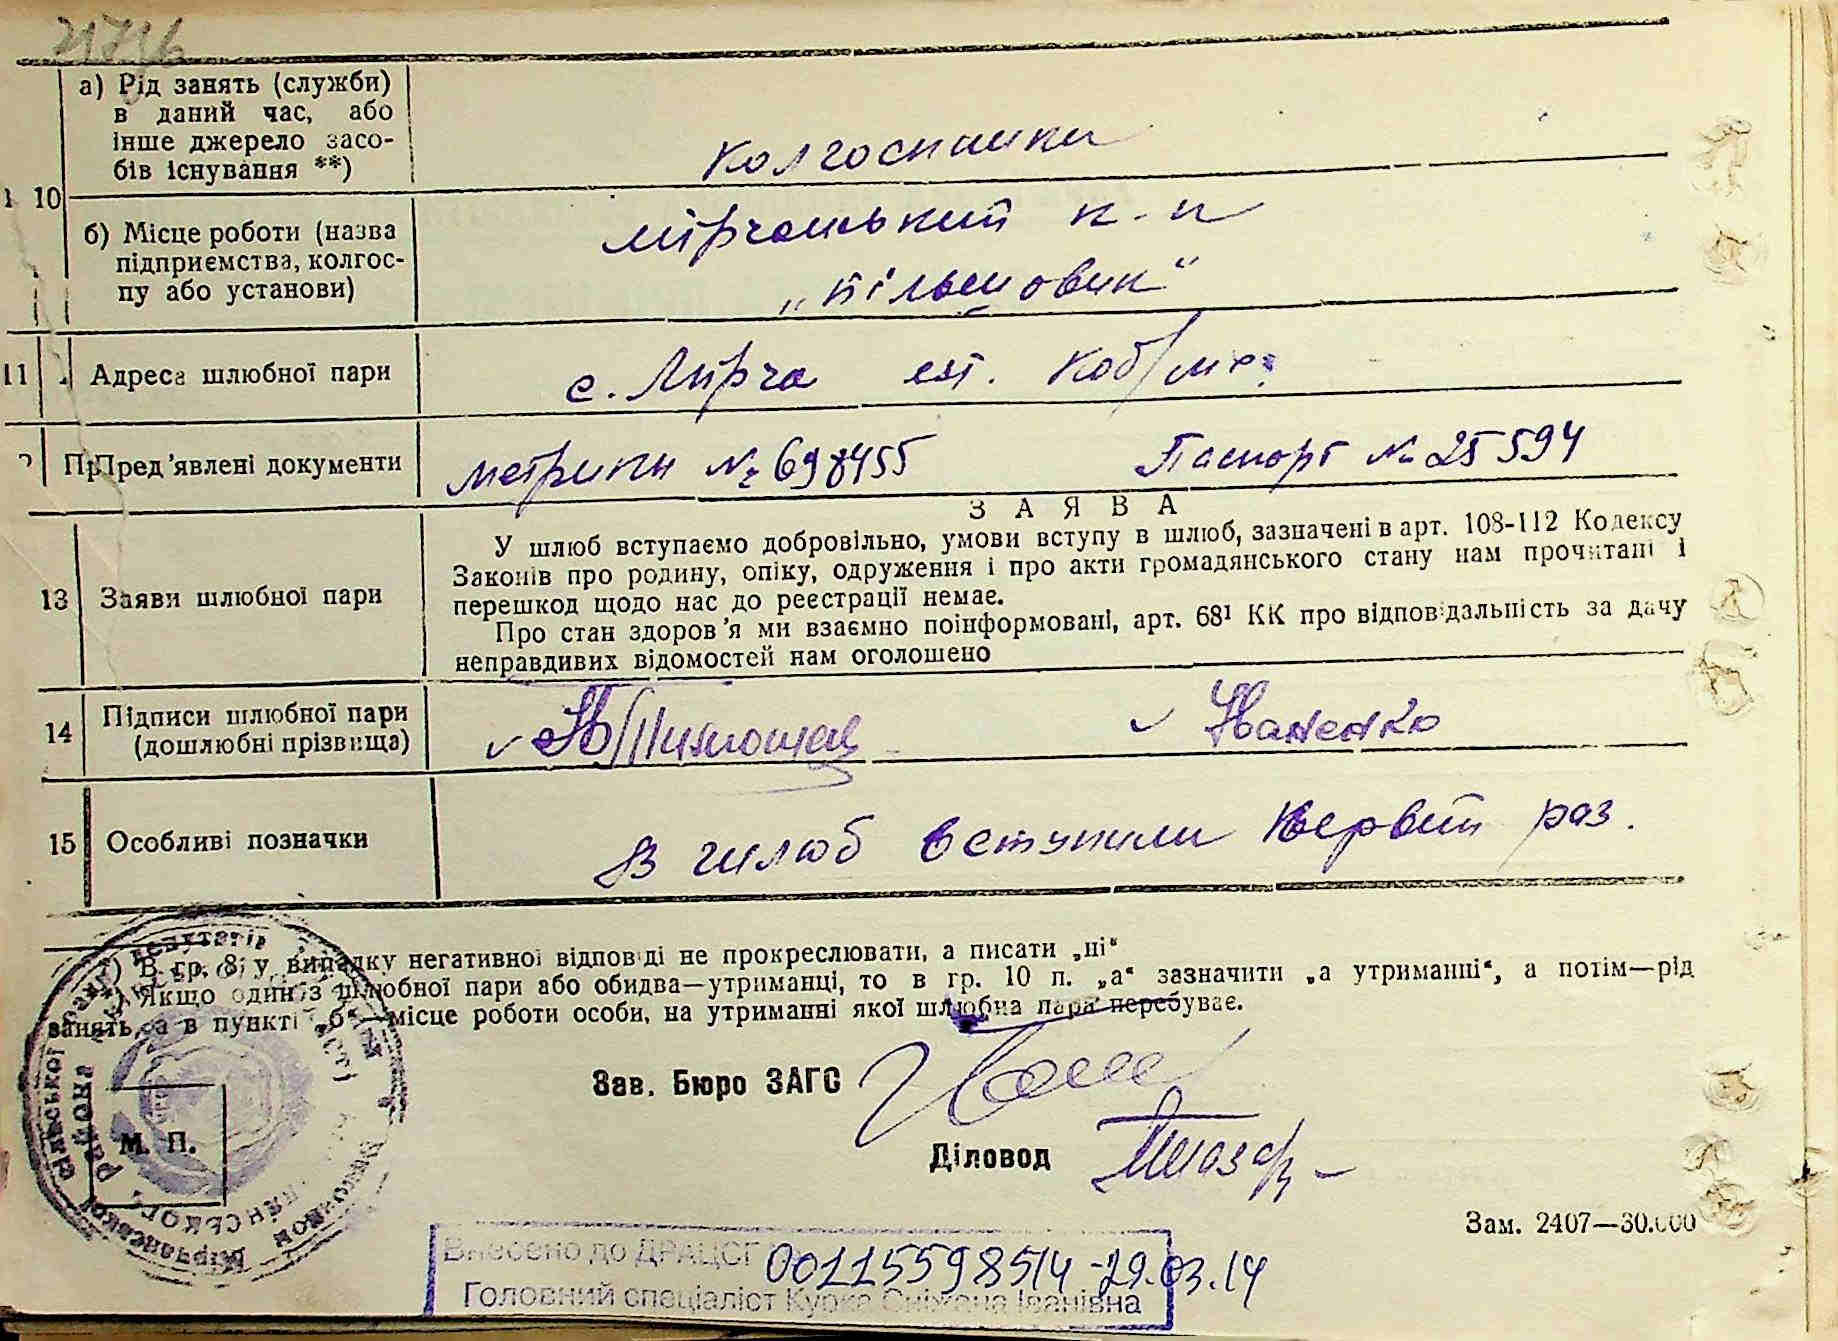 21716
а) Рід занять (служби)
в даний час, або
інше джерело засо-
бів існування **)
колгоспники
10
б) Місце роботи (назва
підприємства, колгос-
пу або установи)
мірчанський к-п
„Більшовик“
11 Адреса шлюбної пари
с. Мірча
Пред'явлені документи
метрики № 698455 Паспорт № 25594
З А Я В А
13 Заяви шлюбної пари
У шлюб вступаємо добровільно, умови вступу в шлюб, зазначені в арт. 108-112 Кодексу
Законів про родину, опіку, одруження і про акти громадянського стану нам прочитані і
перешкод щодо нас до реєстрації немає.
Про стан здоров'я ми взаємно поінформовані, арт. 68¹ КК про відповідальність за дачу
неправдивих відомостей нам оголошено
14 Підписи шлюбної пари
(дошлюбні прізвища)
Іваненко
15 Особливі позначки
В шлюб вступили первий раз.
*) В гр. 8, у випадку негативної відповіді не прокреслювати, а писати „ні“
**) Якщо один із шлюбної пари або обидва—утриманці, то в гр. 10 п. „а“ зазначити „а утриманні“, а потім—рід
занять, а в пункті „б“—місце роботи особи, на утриманні якої шлюбна пара перебуває.
Зав. Бюро ЗАГС
Діловод
М. П.
Зам. 2407—30.000
Внесено до ДРАЦСГ 00115598514 -29.03.14
Головний спеціаліст Курка Сніжана Іванівна